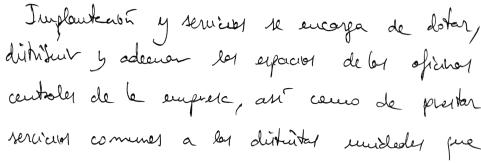 Implantación y servicios se encarga de dotar,
distribuir y adecuar los espacios de las oficinas
centrales de la empresa, así como de prestar
servicios comunes a las distintas unidades que